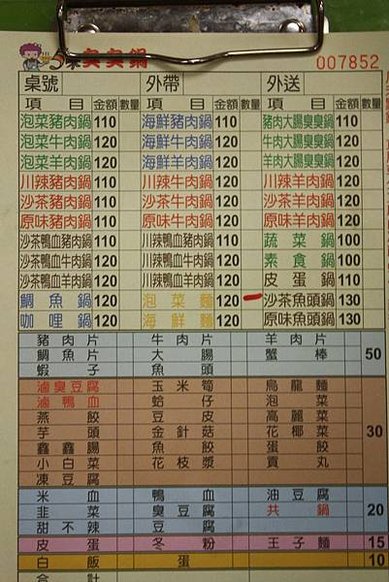 臭臭鍋
007852
桌號 外帶 外送
項目 金額 數量 項目 金額 數量 項目 金額 數量
泡菜豬肉鍋 110 海鮮豬肉鍋 120 豬肉大腸臭臭鍋 110
泡菜牛肉鍋 120 海鮮牛肉鍋 120 牛肉大腸臭臭鍋 120
泡菜羊肉鍋 120 海鮮羊肉鍋 120 羊肉大腸臭臭鍋 120
川辣豬肉鍋 110 川辣牛肉鍋 120 川辣羊肉鍋 120
沙茶豬肉鍋 110 沙茶牛肉鍋 120 沙茶羊肉鍋 120
原味豬肉鍋 110 原味牛肉鍋 120 原味羊肉鍋 120
沙茶鴨血豬肉鍋 110 川辣鴨血豬肉鍋 110 蔬菜鍋 100
沙茶鴨血牛肉鍋 120 川辣鴨血牛肉鍋 120 素食鍋 100
沙茶鴨血羊肉鍋 120 川辣鴨血羊肉鍋 120 皮蛋鍋 110
鯛魚鍋 120 泡菜麵 120 沙茶魚頭鍋 130
咖哩鍋 120 海鮮麵 120 原味魚頭鍋 130
豬肉片 牛肉片 羊肉片
鯛魚片 大腸 蟹棒 50
蝦子 魚頭
滷臭豆腐 玉米筍 烏龍麵
滷鴨血 蛤仔 泡菜
燕餃 豆皮 高麗菜
芋頭 金針菇 花椰菜 30
鑫鑫腸 魚餃 蛋餃
小白菜 花枝漿 貢丸
凍豆腐
米血 鴨血 油豆腐
韭菜 臭豆腐 共鍋 20
甜不辣 豆腐
皮蛋 冬粉 王子麵 15
白飯 蛋 10
合計